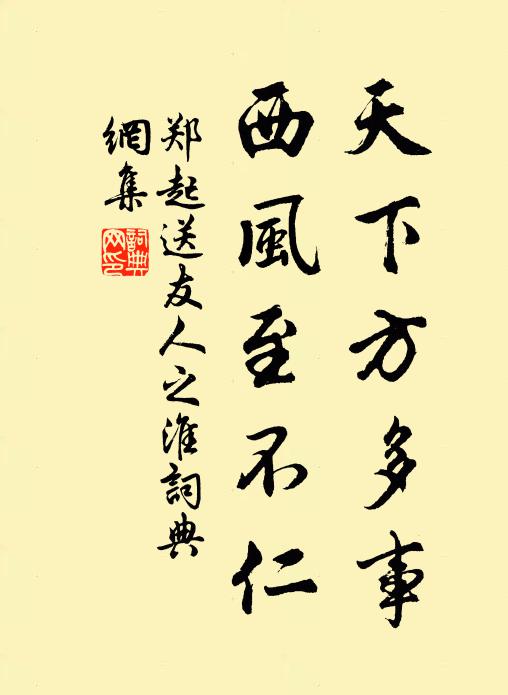 天下方多事
西風至不仁
郑起送友人之淮詞典
網集
詞典
网印